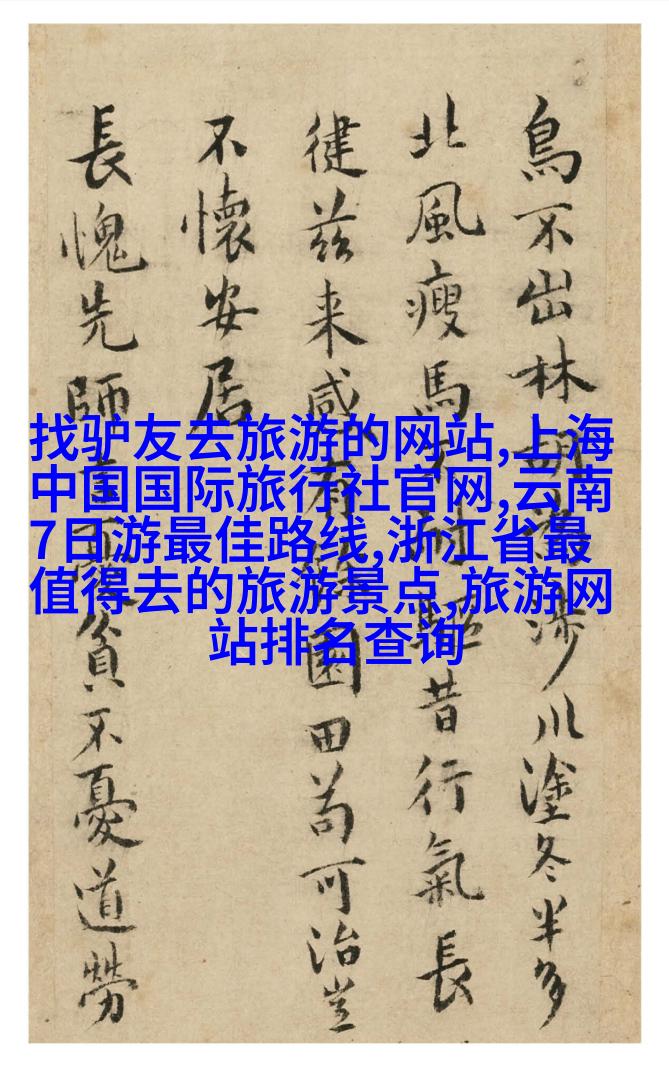 找驴友去旅游的网站,上海
中国国际旅行社官网,云南
7日游最佳路线,浙江省最
值得去的旅游景点,旅游网
站排名查询
鳥不出林胡為涉川塗冬半多
北風瘦馬不耐驅昔行氣長
徤兹来感有園田苟可治豈
不懷安居
長愧先師言貧不憂道勞